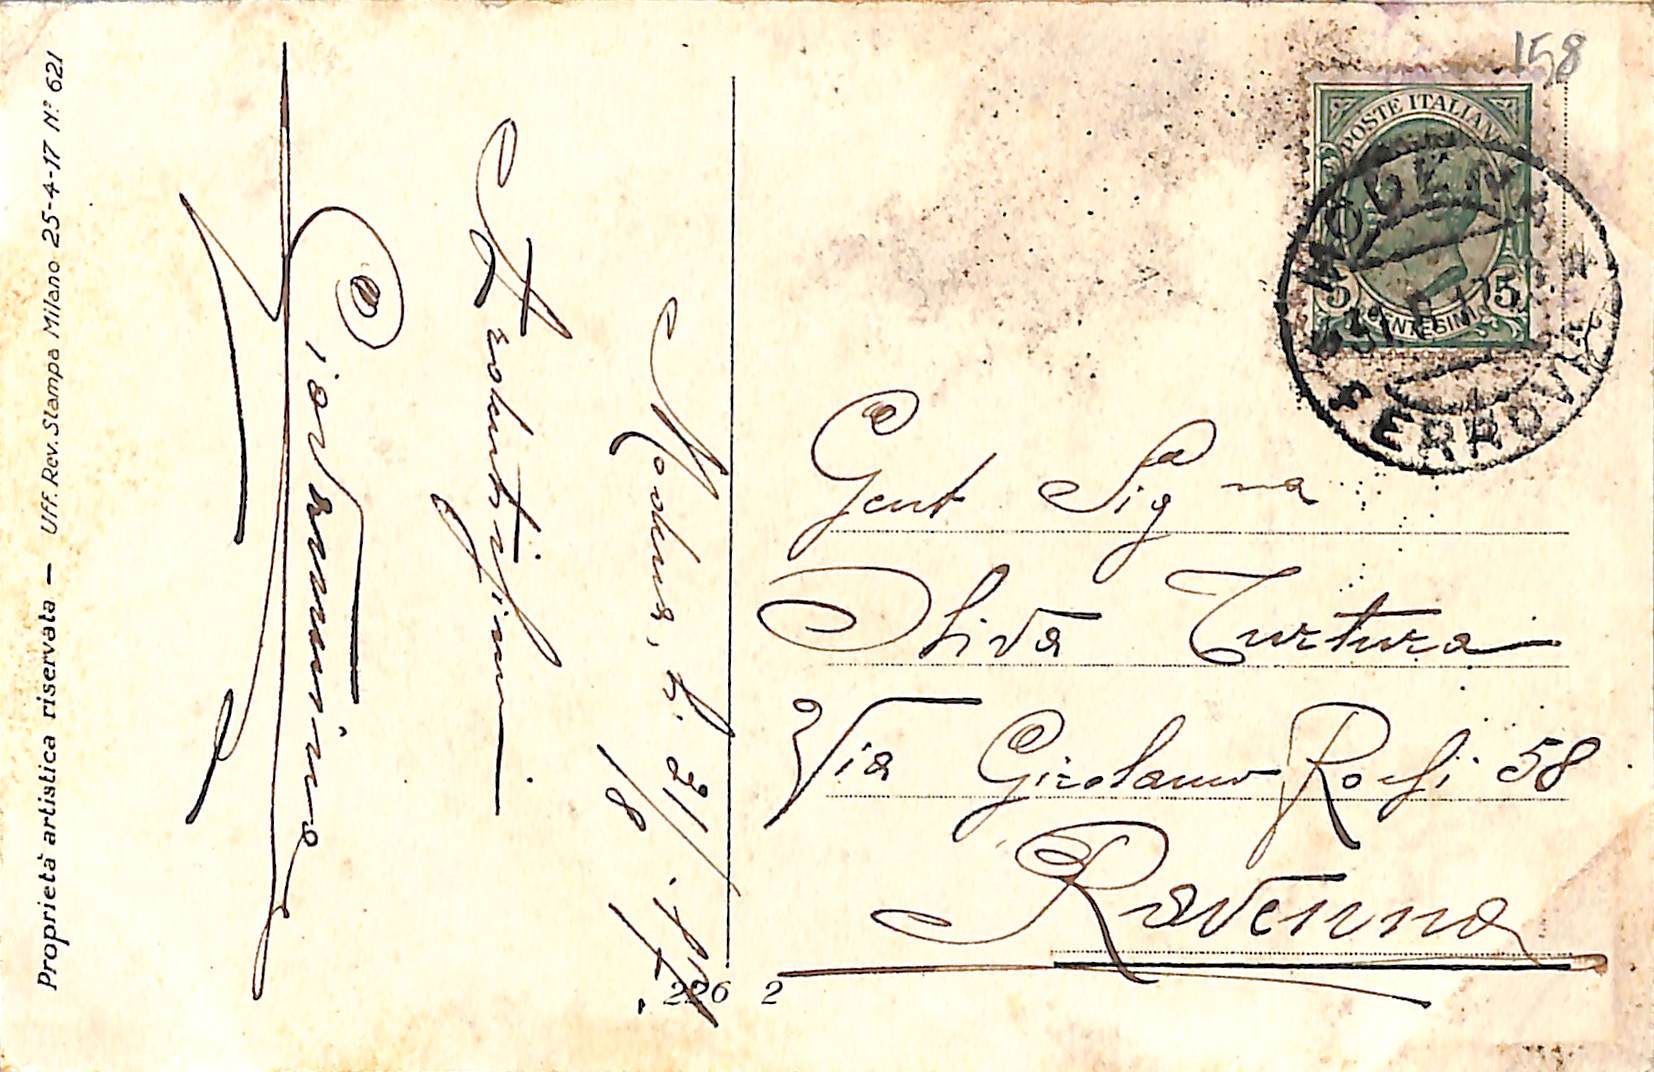 Proprietà artistica riservata — Uff. Rev. Stampa Milano 25-4-17 N.° 621
Modena, li 31/8
Giovannino
226 2
158
POSTE ITALIANE
5 CENTESIMI 5
MODENA
FERROVIA
Gent Sig na
Oliva Turtura
Via Girolamo Rossi 58
Ravenna